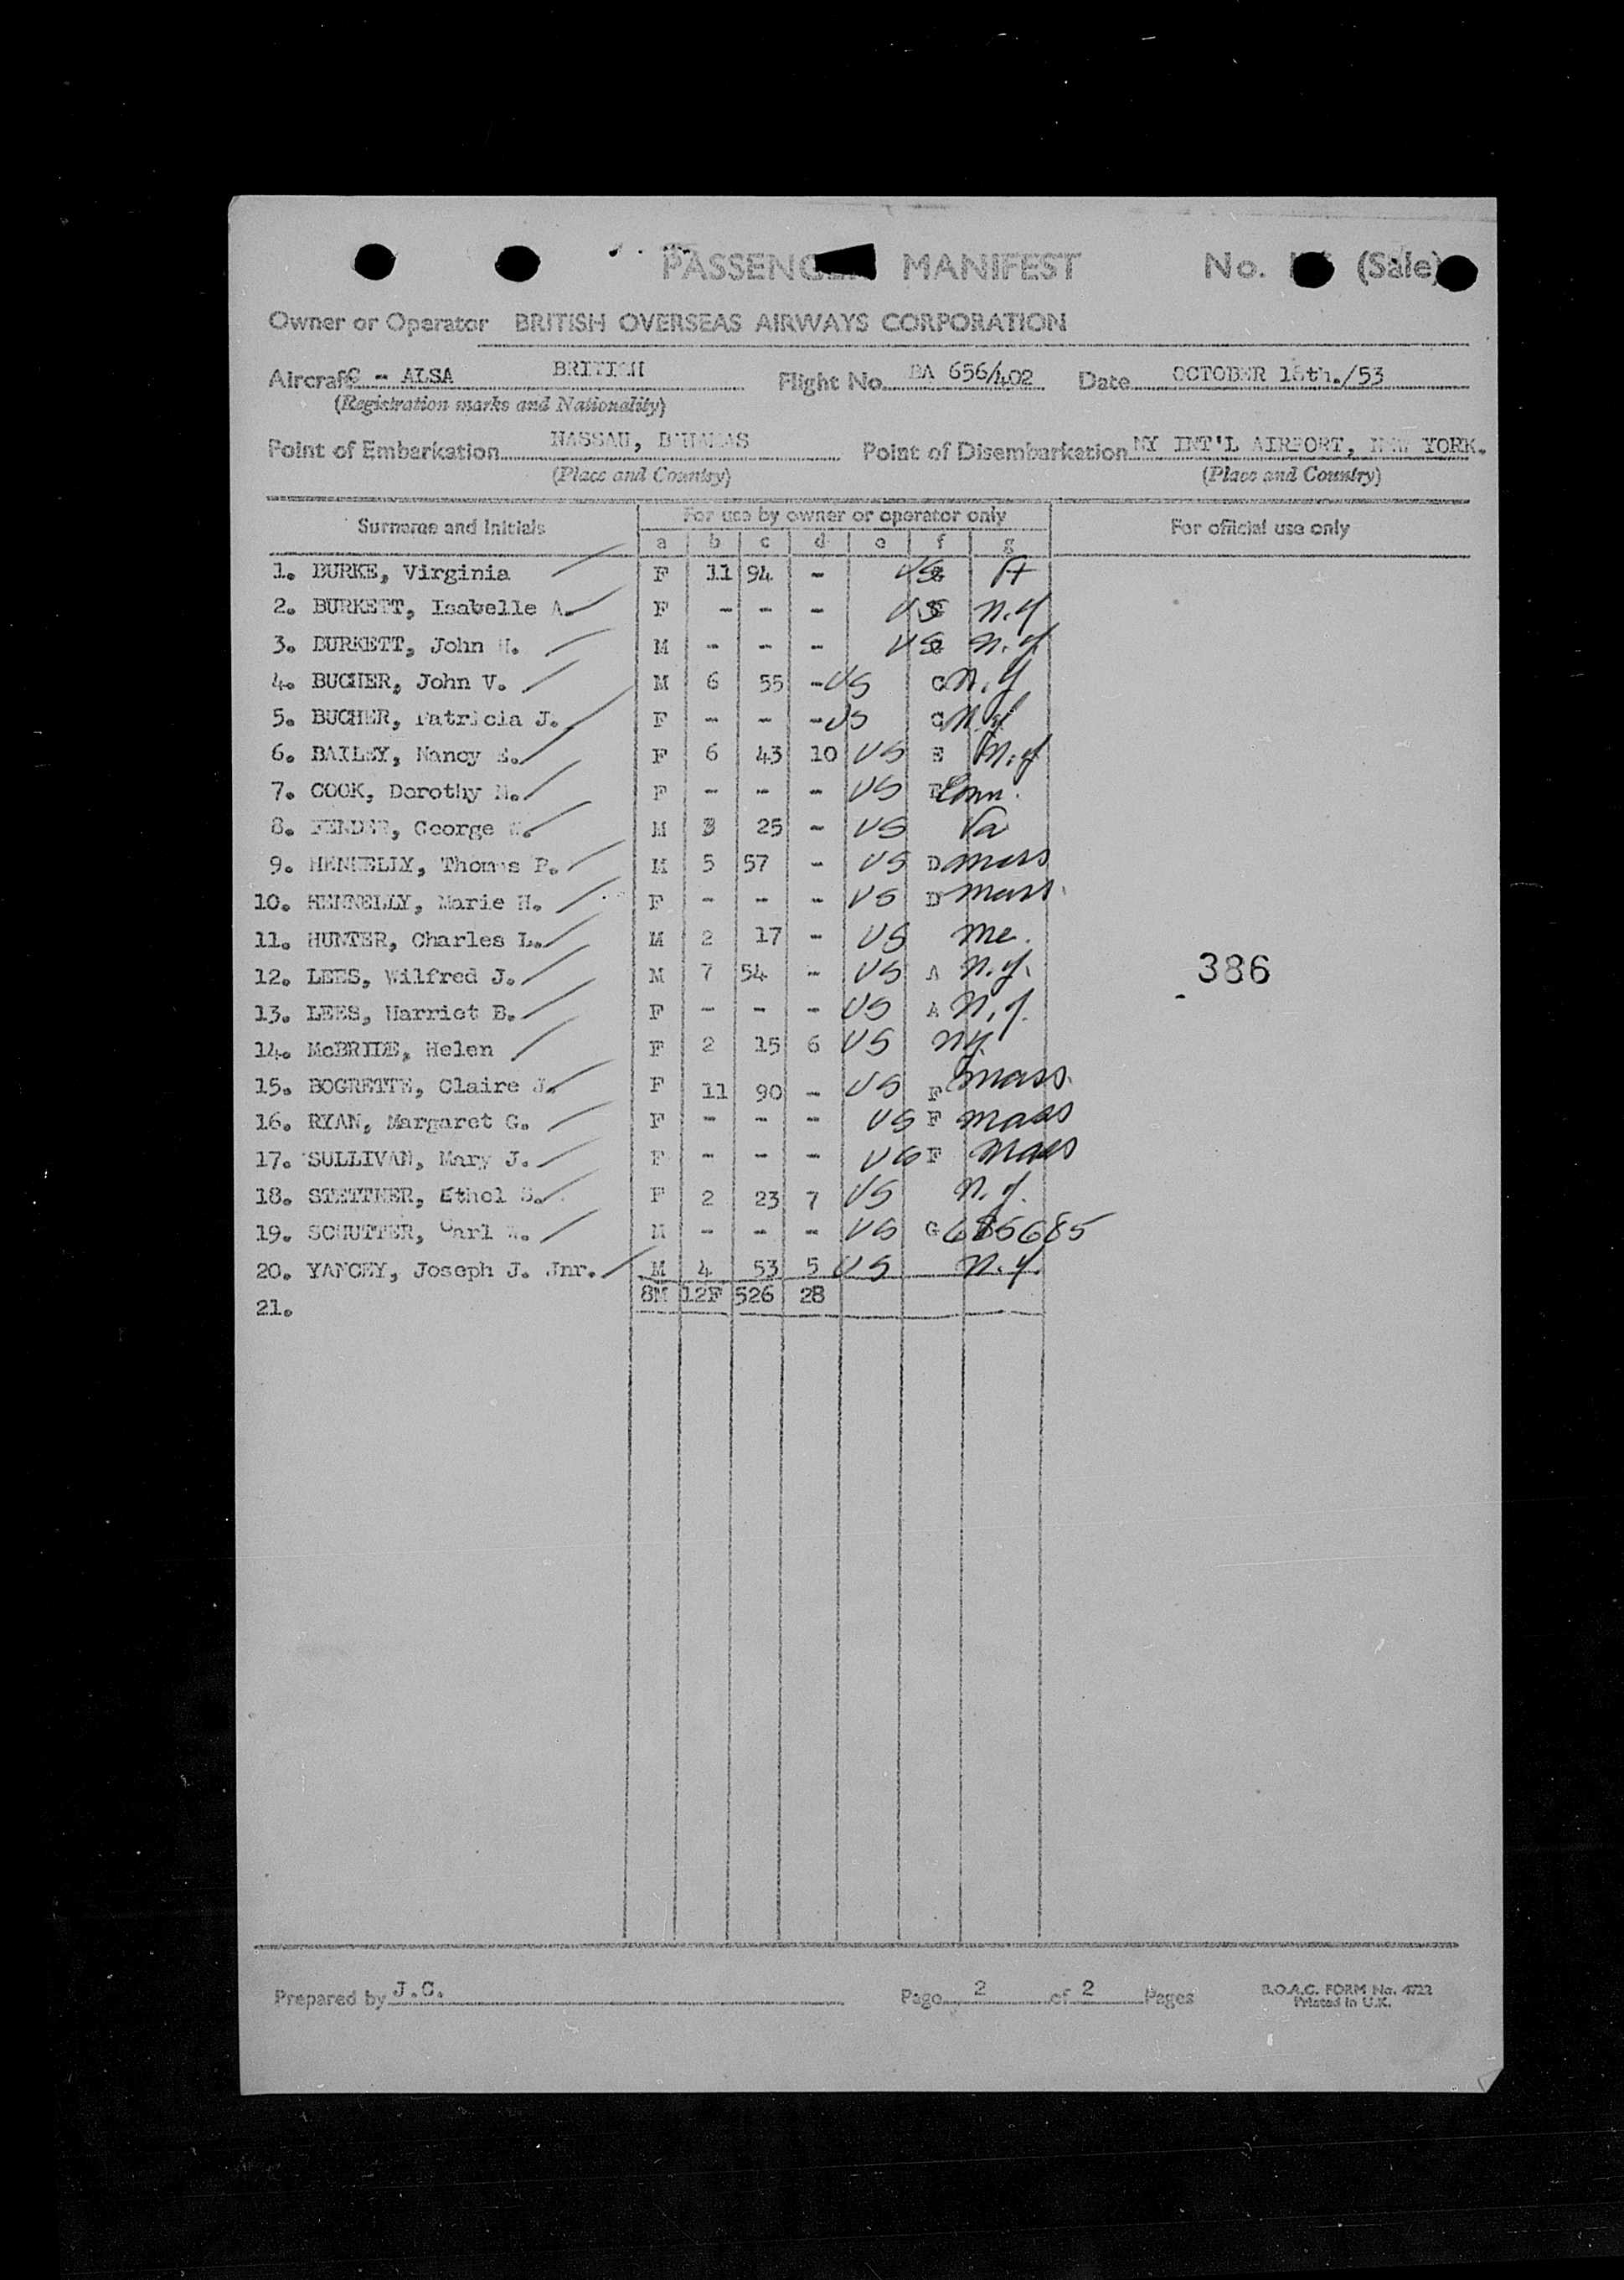 PASSENGER MANIFEST No. (Sale)
Owner or Operator BRITISH OVERSEAS AIRWAYS CORPORATION
Aircraft G - ALSA BRITISH Flight No. BA 656/402 Date OCTOBER /53
(Registration marks and Nationality)
Point of Embarkation NASSAU, BAHAMAS Point of Disembarkation NY INT'L AIRPORT, NEW YORK.
(Place and Country) (Place and Country)
Surname and Initials For use by owner or operator only For official use only
a b c d e f g
1. BURKE, Virginia F 11 94 - US
2. BURKETT, Isabelle A. F - - - US N.Y
3. BURKETT, John H. M - - - US N.Y.
4. BUCHER, John V. M 6 55 - US C N.Y
5. BUCHER, Patricia J. F - - - US C N.Y
6. BAILEY, Nancy E. F 6 43 10 US E N.Y
7. COOK, Dorothy M. F - - - US E Conn.
8. FENDER, George M 3 25 - US Va
9. HENNELLY, Thomas P. M 5 57 - US D Mass
10. HENNELLY, Marie H. F - - - US D Mass.
11. HUNTER, Charles L. M 2 17 - US Me.
12. LEES, Wilfred J. M 7 54 - US A N.Y.
13. LEES, Harriet B. F - - - US A N.Y.
14. McBRIDE, Helen F 2 15 6 US NY.
15. BOGRETTE, Claire J. F 11 90 - US F Mass.
16. RYAN, Margaret G. F - - - US F Mass
17. SULLIVAN, Mary J. F - - - US F Mass
18. STETTNER, Ethel S. F 2 23 7 US N.Y.
19. SCHUTTER, Carl W. M - - - US G 685685
20. YANCEY, Joseph J. Jnr. M 4 53 5 US N.Y.
21. 8M 12F 526 28
386
Prepared by J.C. Page 2 of 2 Pages B.O.A.C. FORM No. 4722
Printed in U.K.